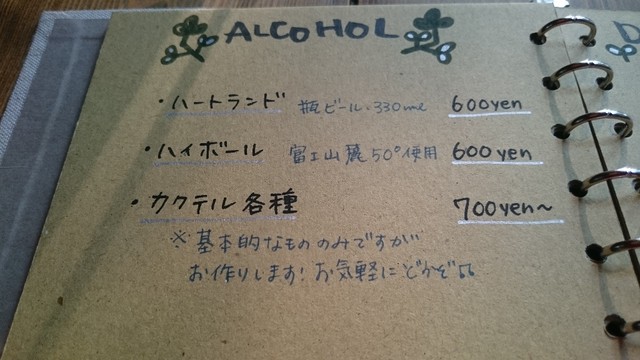 ALCOHOL
・ハートランド 瓶ビール・330ml 600yen
・ハイボール 富士山麓50°使用 600yen
・カクテル各種 700yen~
※基本的なもののみですが
お作りします!お気軽にどうぞ♫